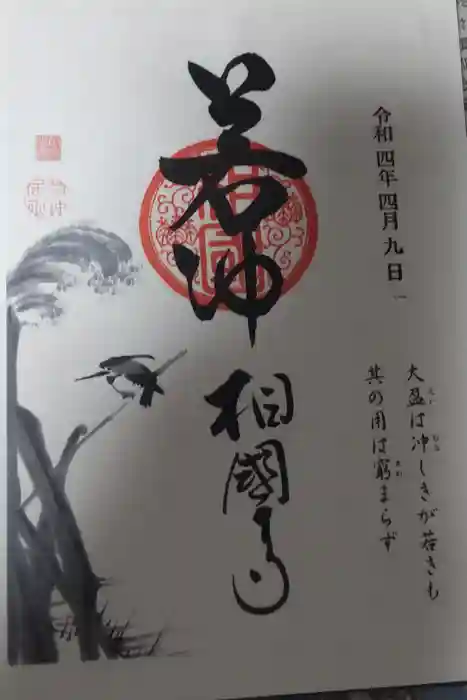 令和四年四月九日
大盈は冲しきが若きも
其の用は窮まらず
若冲
相國寺